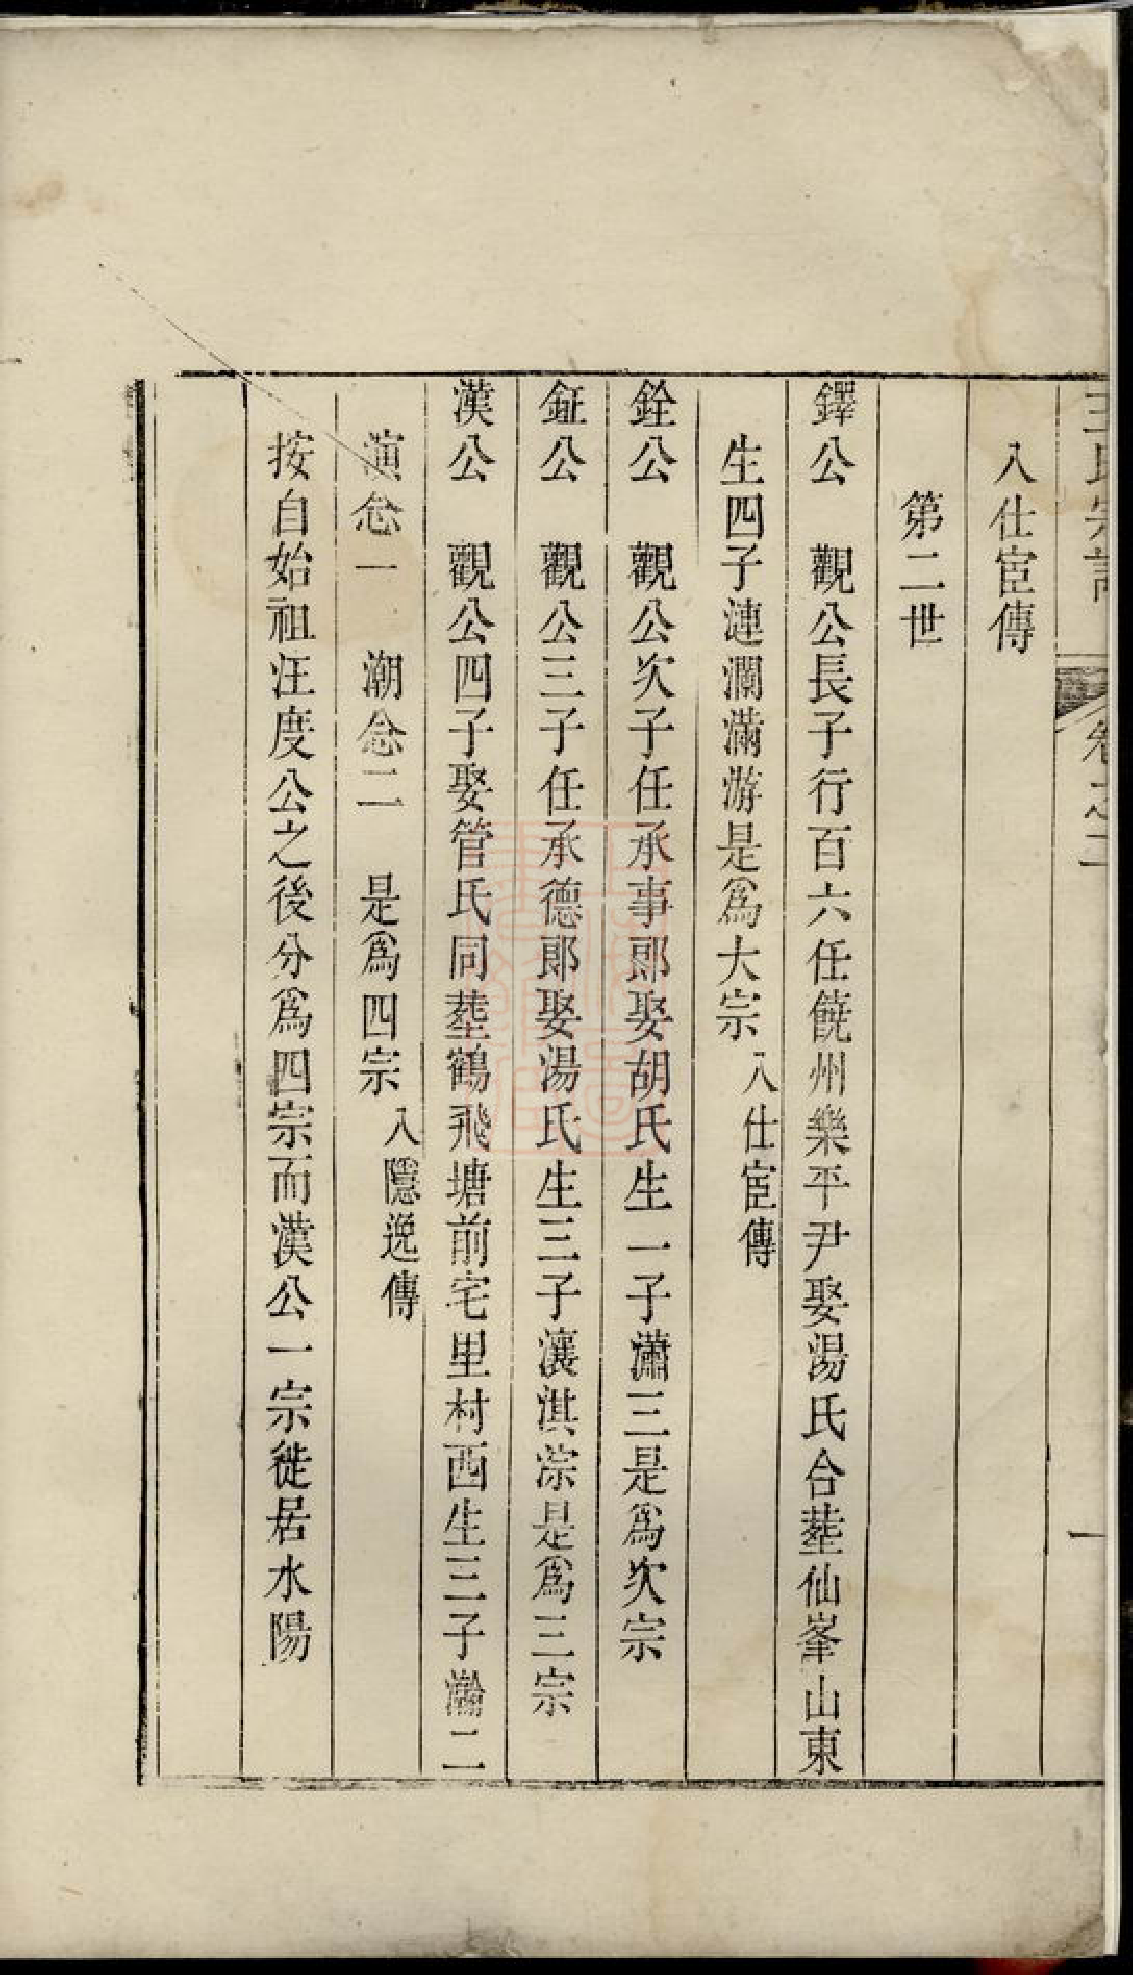 王氏宗譜
卷之二
一
入仕宦傳
第二世
鐸公　觀公長子行百六任饒州樂平尹娶湯氏合塟仙峯山東
生四子漣瀾滿游是爲大宗入仕宦傳
銓公　觀公次子任承事郎娶胡氏生一子瀟三是爲次宗
鉦公　觀公三子任承德郎娶湯氏生三子瀼淇淙是爲三宗
漢公　觀公四子娶管氏同塟鶴飛塘前宅里村西生三子瀚二
演念一　潮念二　是爲四宗入隱逸傳
按自始祖汪度公之後分爲四宗而漢公一宗徙居水陽